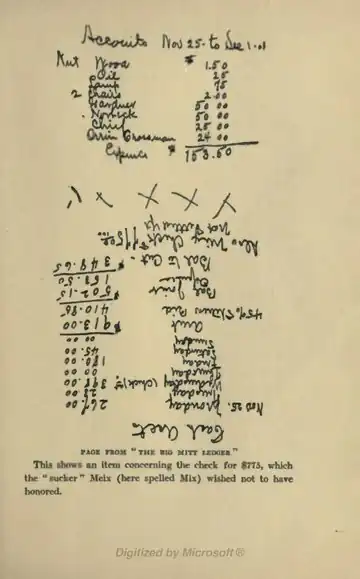 Accounts Nov 25 - to Dec 1 - 01
Nut Wood $ 1.50
Oil 25
Lamp 75
2 Chairs 2 00
Gardner 50 00
Norbeck 50 00
Chief 25 00
Orrin Crossman 24 00
Expence $ 153.50
Cash Acct
Nov 25. Monday 267.00
Tuesday 23 00
Wednesday (Check 398.00
Thursday 00 00
Friday 180.00
Saturday 45.00
Sunday 00 00
Amt $ 913.00
45% Paid 410.85
Bal Joint $ 502.15
Expence 153.50
Bal to Cut - $ 348.65
Also Mix Check $ 775.00
Not Settled yet
PAGE FROM "THE BIG MITT LEDGER."
This shows an item concerning the check for $775, which
the "sucker" Meix (here spelled Mix) wished not to have
honored.
Digitized by Microsoft ®